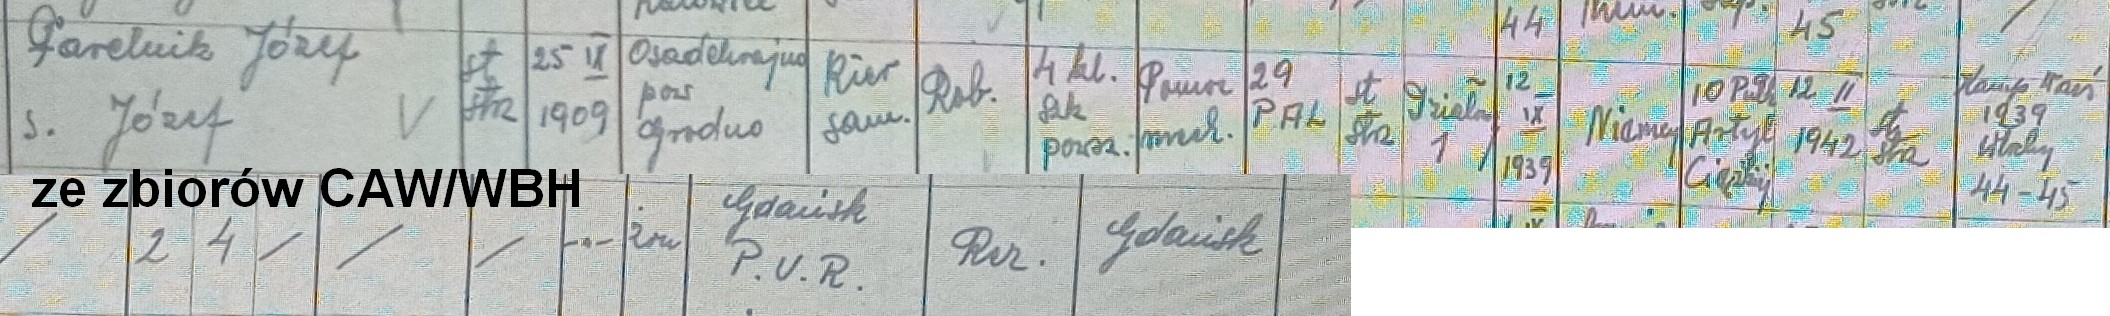 44
45
Józef
s. Józef V
st
strz
25 IX
1909
pow
Grodno
Kier
sam.
Rob.
4 kl.
szk
powsz.
Pomoc
mech.
29
PAL
st
strz
Działon
1
12
IX
1939
Niemcy
10 Pułk
Artyl
Ciężkiej
12 II
1942
st
strz
Kamp Wrześ
1939
Włochy
44-45
ze zbiorów CAW/WBH
/ 2 4 / / / -"- żon
Gdańsk
P.U.R.
Rez.
Gdańsk